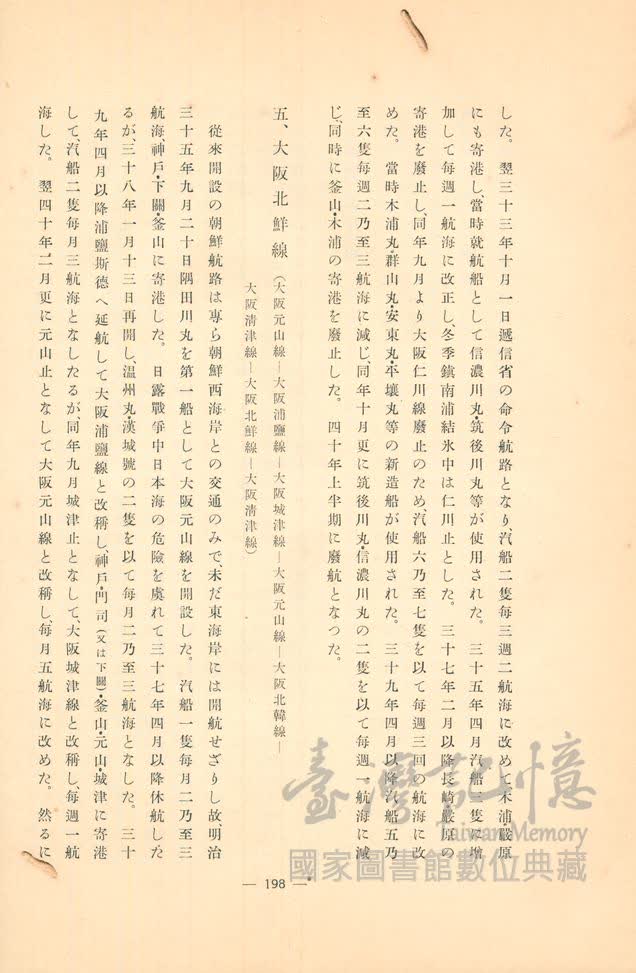 した。　翌三十三年十月一日遞信省の命令航路となり、汽船二隻每三週二航海に改めて木浦嚴原
にも寄港し、當時就航船として信濃川丸・筑後川丸等が使用された。　三十五年四月汽船三隻に增
加して每週一航海に改正し、冬季鎭南浦結氷中は仁川止とした。　三十七年二月以降長崎嚴原の
寄港を廢止し、同年九月より大阪仁川線廢止のため、汽船六乃至七隻を以て每週三回の航海に改
めた。　當時木浦丸・群山丸・安東丸・平壤丸等の新造船が使用された。　三十九年四月以降汽船五乃
至六隻每週二乃至三航海に減じ、同年十月更に筑後川丸・信濃川丸の二隻を以て每週一航海に減
じ、同時に釜山・木浦の寄港を廢止した。　四十年上半期に廢航となつた。
五、大阪北鮮線（大阪元山線―大阪浦鹽線―大阪城津線―大阪元山線―大阪北韓線―
大阪淸津線―大阪北鮮線―大阪淸津線）
從來開設の朝鮮航路は專ら朝鮮西海岸との交通のみで、未だ東海岸には開航せざりし故、明治
三十五年九月二十日隅田川丸を第一船として大阪元山線を開設した。　汽船一隻每月二乃至三
航海神戶・下關・釜山に寄港した。　日露戰爭中日本海の危險を虞れて三十七年四月以降休航した
るが、三十八年一月十三日再開し、温州丸・漢城號の二隻を以て每月二乃至三航海となした。　三十
九年四月以降浦鹽斯德へ延航して大阪浦鹽線と改稱し、神戶・門司（又は下關）・釜山・元山・城津に寄港
して、汽船二隻每月三航海となしたるが、同年九月城津止となして、大阪城津線と改稱し、每週一航
海した。　翌四十年二月更に元山止となして大阪元山線と改稱し、每月五航海に改めた。　然るに
— 198 —
臺灣記憶
Taiwan Memory
國家圖書館數位典藏